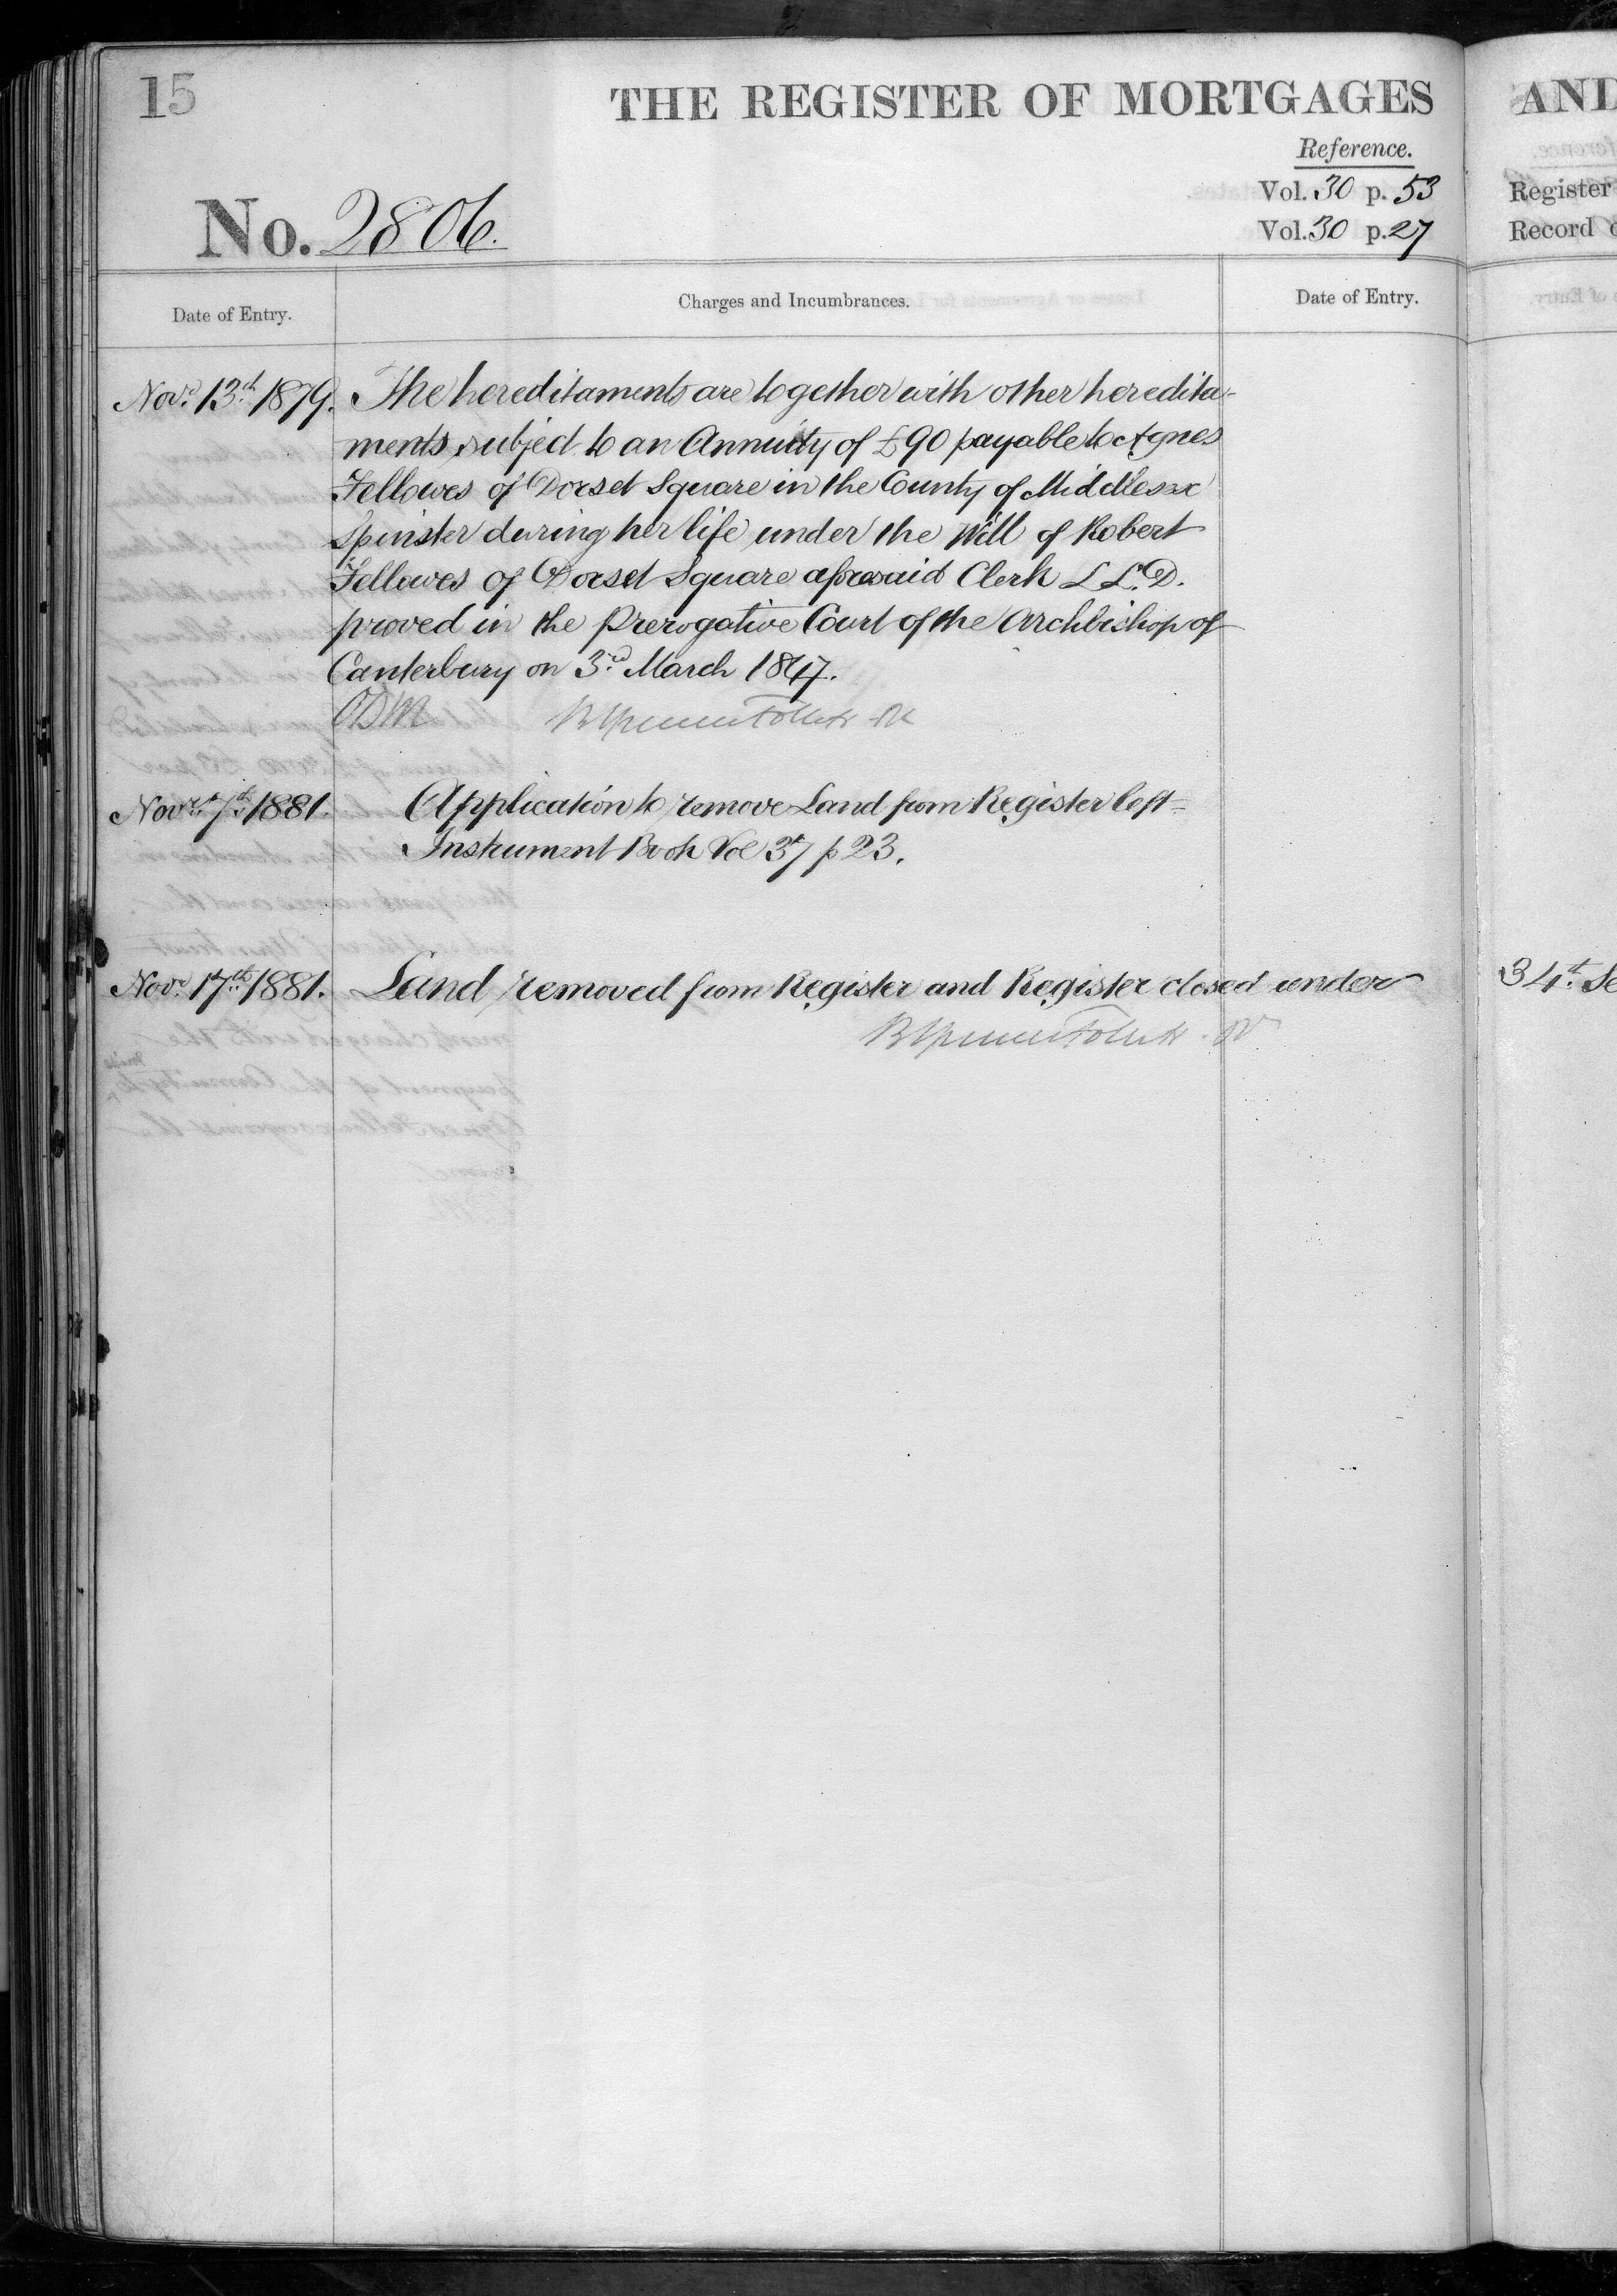 15
THE REGISTER OF MORTGAGES
AND
Reference.
Vol. 30 p. 53
Register
No. 2806.
Vol. 30 p. 27
Record
Date of Entry.
Charges and Incumbrances.
Date of Entry.
Novr. 13th 1879.
The hereditaments are together with other heredita-
ments subject to an Annuity of £90 payable to Agnes
Fellowes of Dorset Square in the County of Middlesex
Spinster during her life under the Will of Robert
Fellowes of Dorset Square aforesaid Clerk L L.D.
proved in the Prerogative Court of the Archbishop of
Canterbury on 3rd March 1847.
Novr. 7th 1881.
Application to remove Land from Register left =
Instrument Book Vol 37 p 23.
Novr. 17th 1881.
Land removed from Register and Register closed under
34th. Se